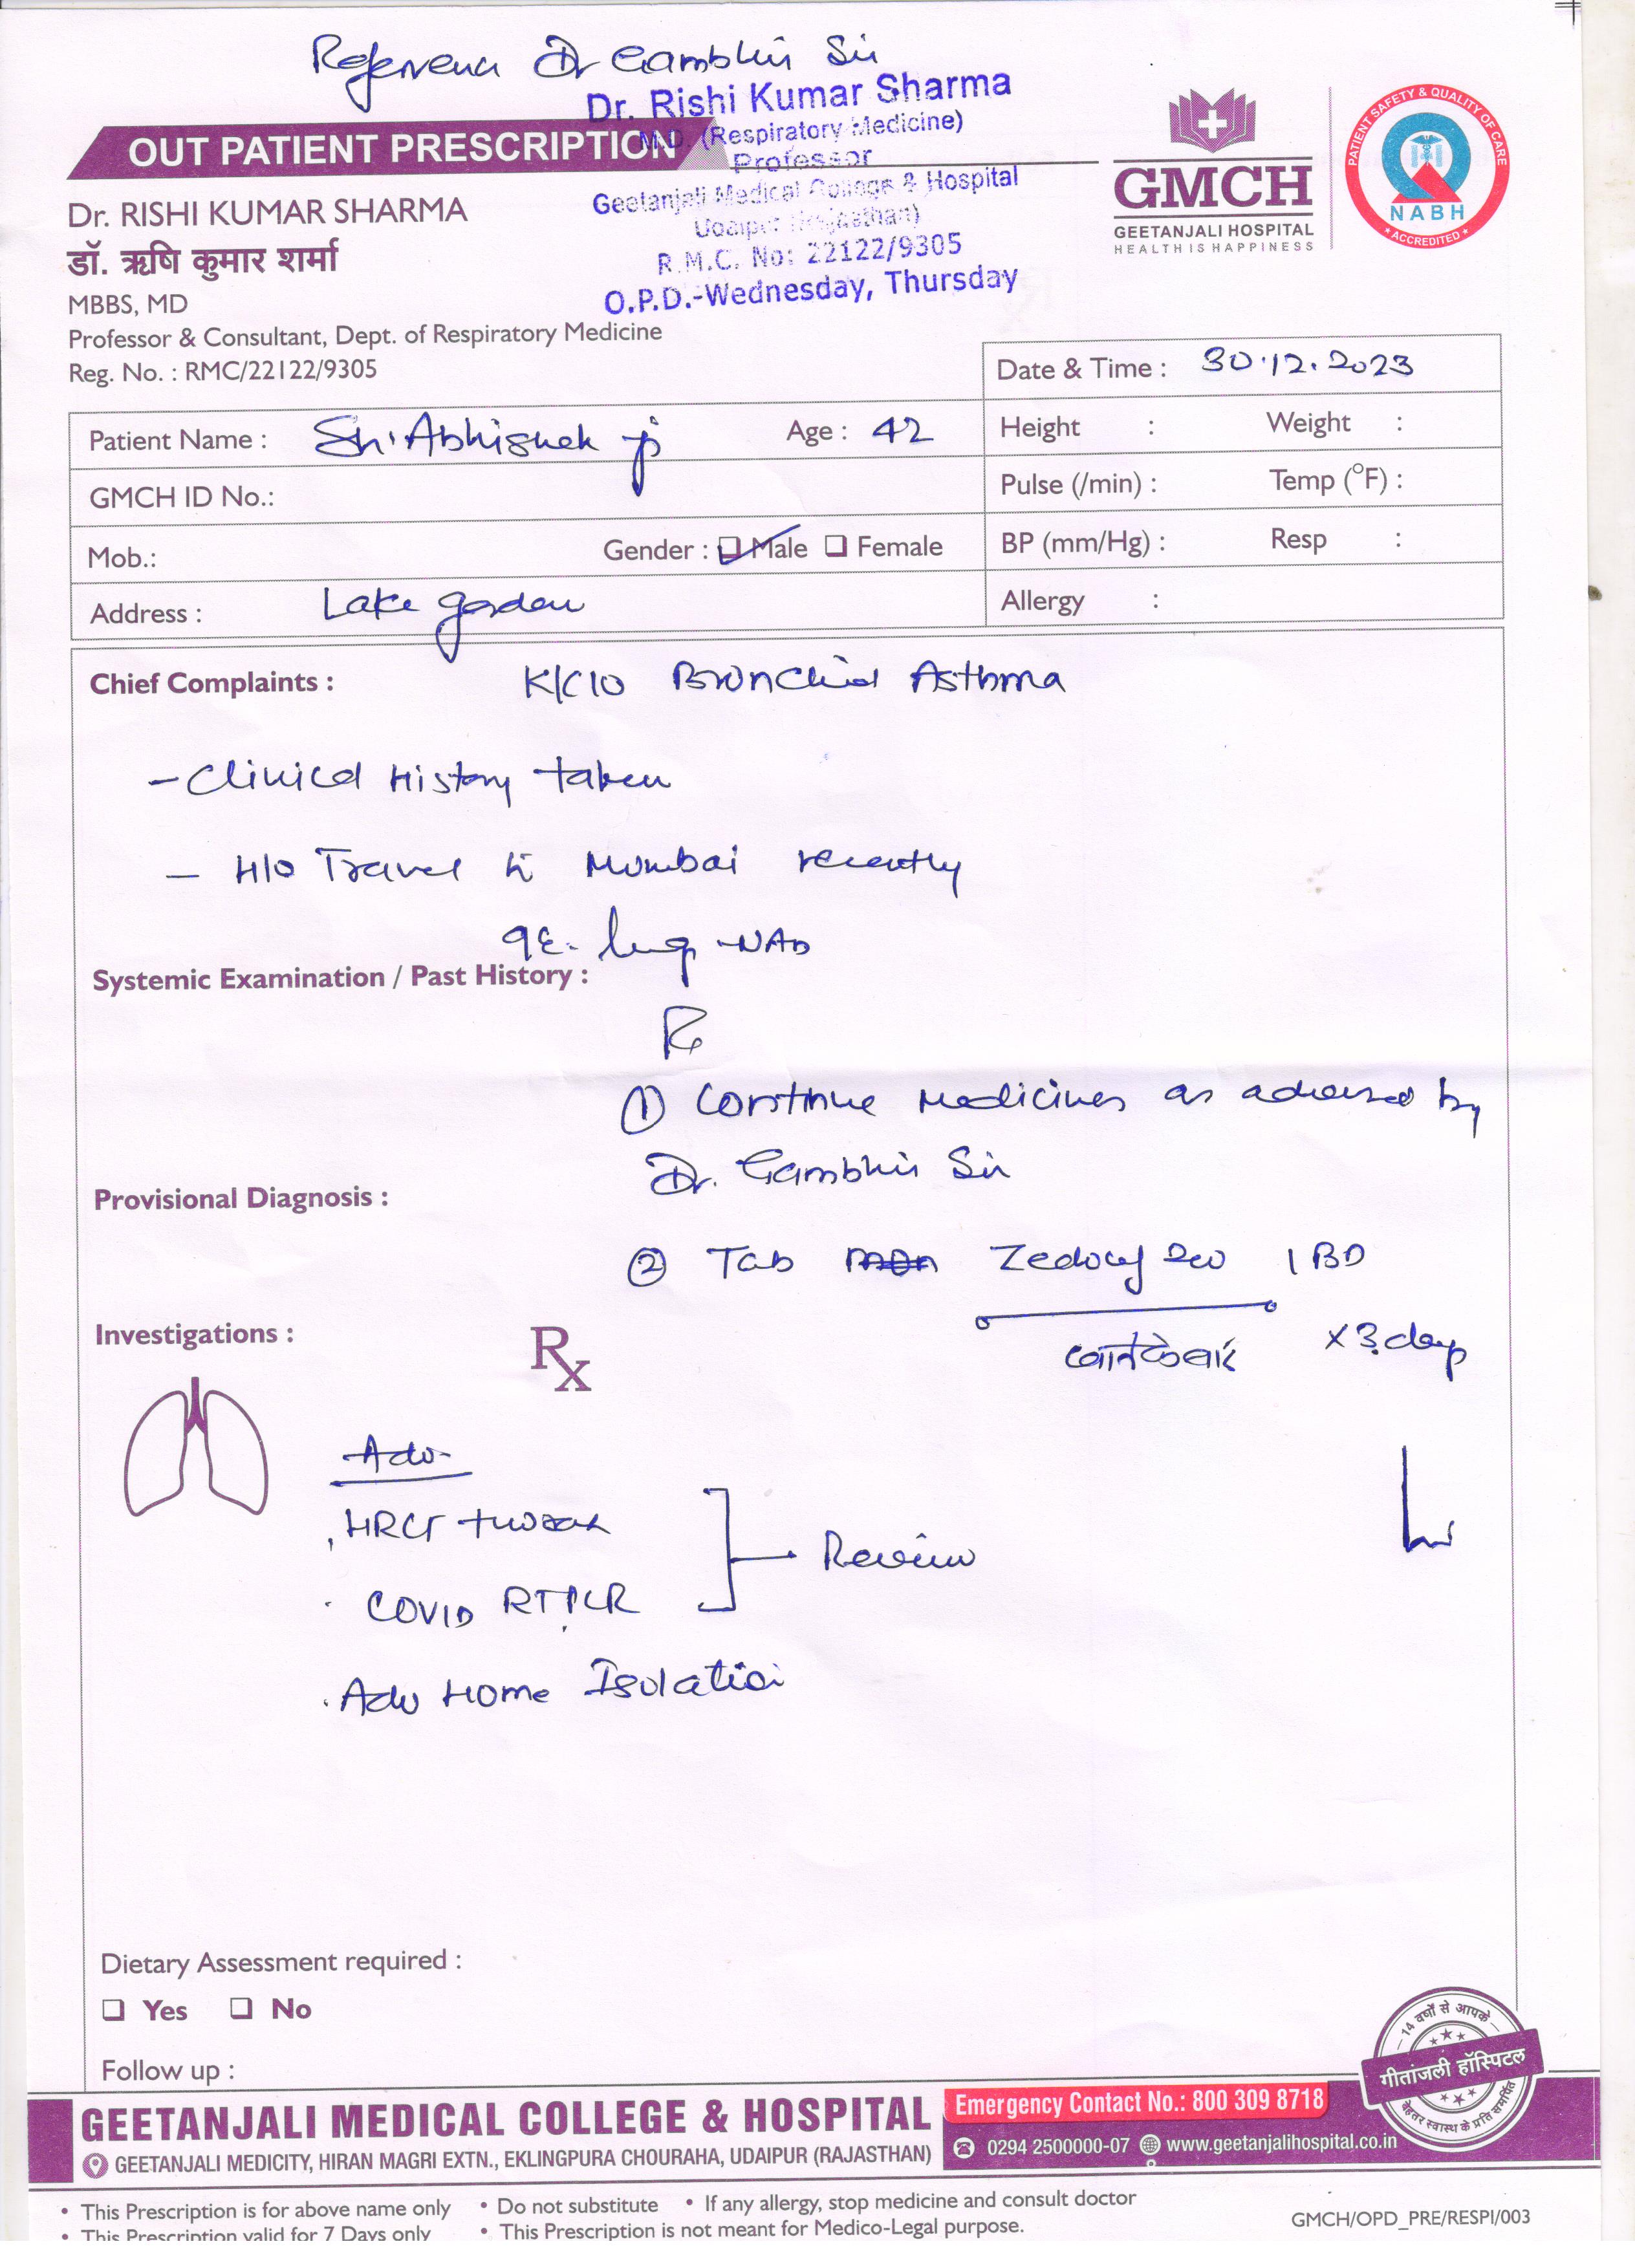 Reference Dr Gambhir Sir
Dr. Rishi Kumar Sharma
M.D. (Respiratory Medicine)
Professor
Geetanjali Medical College & Hospital
Udaipur (Rajasthan)
R.M.C. No: 22122/9305
O.P.D.-Wednesday, Thursday
OUT PATIENT PRESCRIPTION
GMCH
GEETANJALI HOSPITAL
HEALTH IS HAPPINESS
PATIENT SAFETY & QUALITY OF CARE
NABH
ACCREDITED
Dr. RISHI KUMAR SHARMA
डॉ. ऋषि कुमार शर्मा
MBBS, MD
Professor & Consultant, Dept. of Respiratory Medicine
Reg. No. : RMC/22122/9305
Date & Time : 30.12.2023
Patient Name : Sh. Abhishek ji Age : 42
Height : Weight :
GMCH ID No.:
Pulse (/min) : Temp (°F) :
Mob.: Gender : Male Female
BP (mm/Hg) : Resp :
Address : Lake garden
Allergy :
Chief Complaints : K/C/O Bronchial Asthma
- Clinical History taken
- H/O Travel to Mumbai recently
O/E. lung - NAD
Systemic Examination / Past History :
Rx
① Continue medicines as advised by
Dr. Gambhir Sir
Provisional Diagnosis :
② Tab Zedocef 200 1 BD
x 3 days
Investigations :
Rx
Adv-
. HRCT thorax
. COVID RTPCR
Review
. Adv Home Isolation
Dietary Assessment required :
Yes No
Follow up :
14 वर्षों से आपके
गीतांजली हॉस्पिटल
बेहतर स्वास्थ के प्रति समर्पित
GEETANJALI MEDICAL COLLEGE & HOSPITAL
Emergency Contact No.: 800 309 8718
GEETANJALI MEDICITY, HIRAN MAGRI EXTN., EKLINGPURA CHOURAHA, UDAIPUR (RAJASTHAN)
0294 2500000-07 www.geetanjalihospital.co.in
• This Prescription is for above name only • Do not substitute • If any allergy, stop medicine and consult doctor
• This Prescription valid for 7 Days only • This Prescription is not meant for Medico-Legal purpose.
GMCH/OPD_PRE/RESPI/003